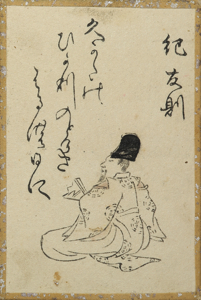 紀友則
久かたの
ひかりのとけき
はるの日に